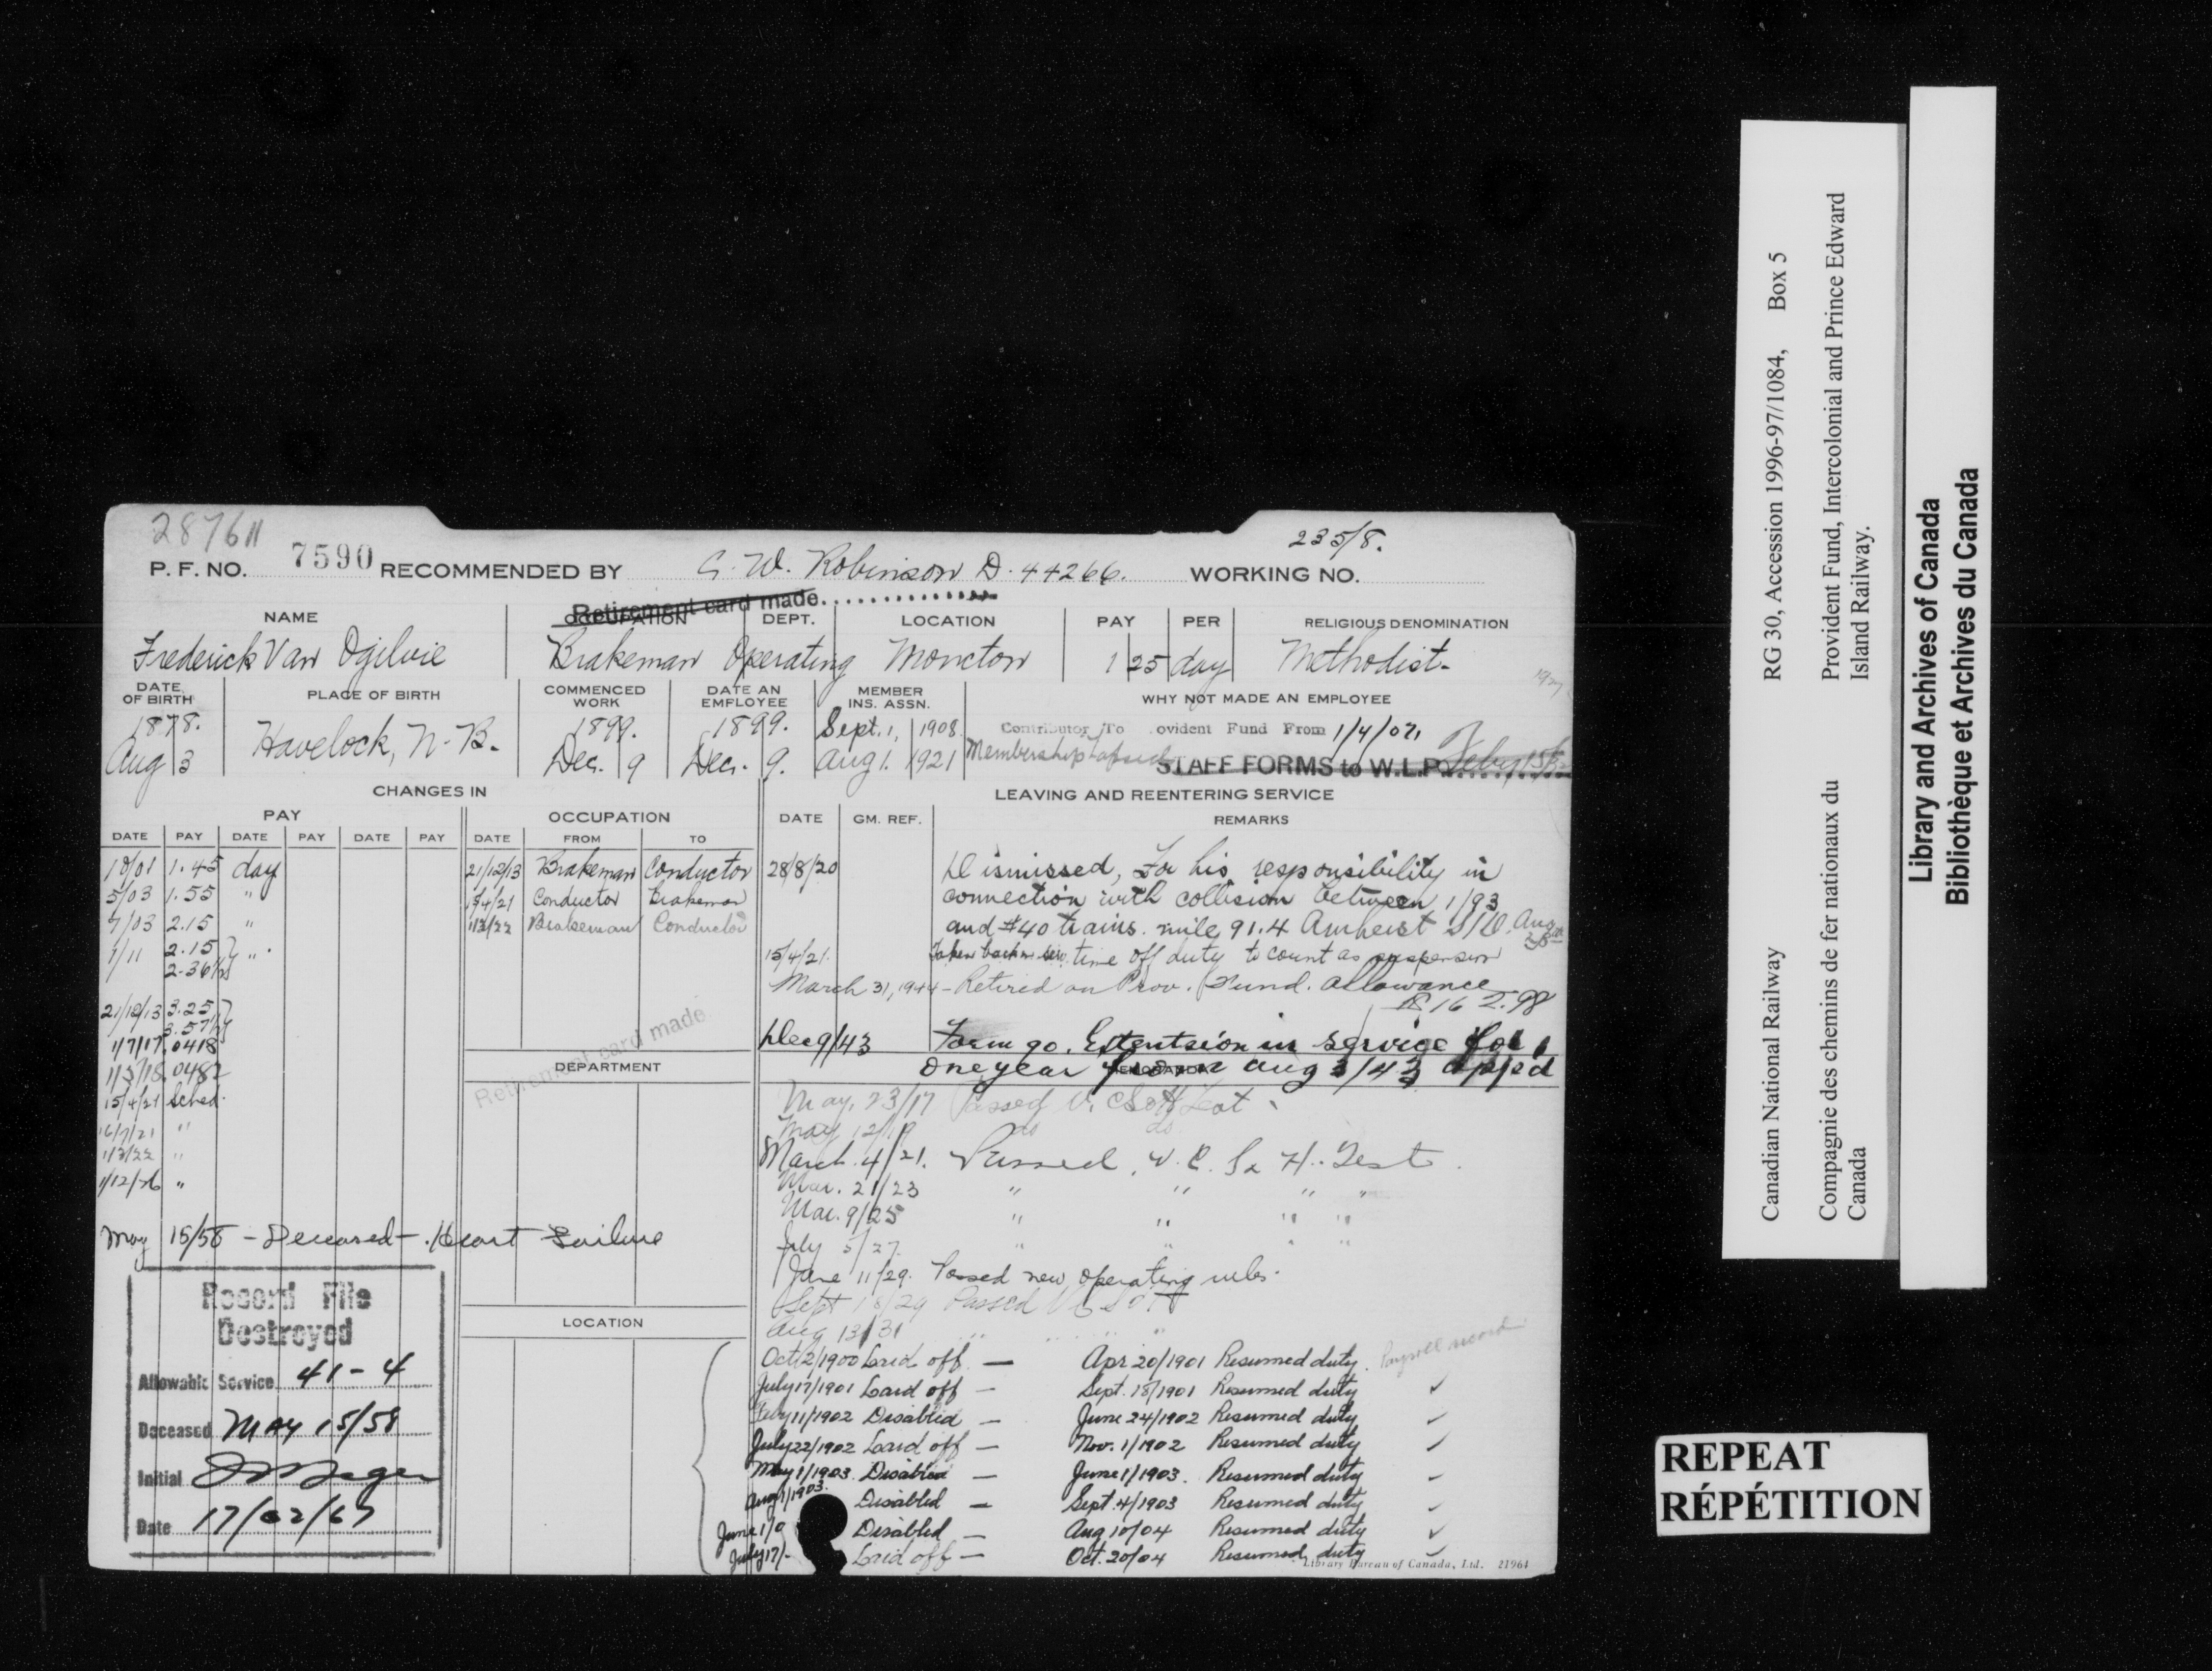 287611
235/8.
P. F. NO. 7590 RECOMMENDED BY G. W. Robinson D. 44266. WORKING NO.
Retirement card made
NAME OCCUPATION DEPT. LOCATION PAY PER RELIGIOUS DENOMINATION
Frederick Van Ogilvie Brakeman Operating Moncton 1 25 day Methodist
DATE OF BIRTH PLACE OF BIRTH COMMENCED WORK DATE AN EMPLOYEE MEMBER INS. ASSN. WHY NOT MADE AN EMPLOYEE
1878. Havelock, N. B. 1899. 1899. Sept. 1, 1908 Contributor To ovident Fund From 1/4/07,
Aug 3 Dec. 9 Dec. 9. Aug 1. 1921 Membership lapsed
STAFF FORMS to W.L.P.
CHANGES IN
PAY
DATE PAY DATE PAY DATE PAY
10/01 1.45 day
5/03 1.55 "
7/03 2.15 "
1/11 2.15 " .
2.36½
21/12/13 3.25
3.57½
1/7/17 .0418
1/3/18 .0482
15/4/21 Sched.
16/7/21 "
1/3/22 "
1/12/26 "
OCCUPATION
DATE FROM TO
21/12/13 Brakeman Conductor
15/4/21 Conductor Brakeman
1/3/22 Brakeman Conductor
Retirement card made
DEPARTMENT
LOCATION
May 15/58 - Deceased - Heart Failure
Record File
Destroyed
Allowable Service 41-4
Deceased MAY 15/58
Initial
Date 17/02/67
LEAVING AND REENTERING SERVICE
DATE GM. REF. REMARKS
28/8/20 Dismissed, For his responsibility in
connection with collision between 1/93
and #40 trains. mile 91.4 Amherst S/D. Aug
15/4/21. Taken back in ser. time off duty to count as suspension
March 31, 1944 - Retired on Prov. Fund. allowance
162.98
Dec 9/43 Form 90. Extentsion in service for
one year from Aug 3/43 app'd
May, 23/17 Passed V. C S & H Test
May 12/19 do do
March 4/21. Passed V. C. S & H. Test.
Mar. 21/23 " " " "
Mar. 9/25 " " " "
July 5/27. " " " "
June 11/29. Passed new operating rules.
Sept 18/29 Passed V C S & H
Aug 13/31 " " " "
Oct. 2/1900 Laid off - Apr 20/1901 Resumed duty. Payroll record
July 17/1901 Laid off - Sept. 18/1901 Resumed duty ✓
Feby 11/1902 Disabled - June 24/1902 Resumed duty ✓
July 22/1902 Laid off - Nov. 1/1902 Resumed duty ✓
May 1/1903. Disabled - June 1/1903. Resumed duty ✓
Aug 1/1903. Disabled - Sept. 4/1903 Resumed duty ✓
June 1/0 Disabled - Aug 10/04 Resumed duty ✓
July 17/ Laid off - Oct. 20/04 Resumed duty ✓
Library Bureau of Canada, Ltd. 21964
Canadian National Railway RG 30, Accession 1996-97/1084, Box 5
Compagnie des chemins de fer nationaux du Provident Fund, Intercolonial and Prince Edward
Canada Island Railway.
Library and Archives of Canada
Bibliothèque et Archives du Canada
REPEAT
RÉPÉTITION